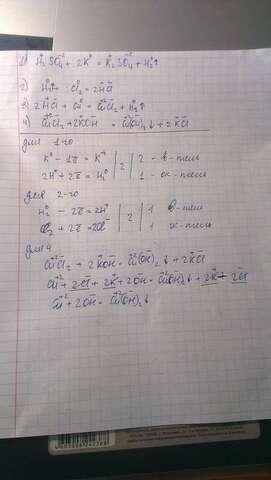 1) H₂⁺SO₄⁻² + 2K⁰ = K₂⁺SO₄⁻² + H₂⁰↑
2) H₂↑ + Cl₂⁰ = 2HCl
3) 2HCl + Cu⁰ = CuCl₂ + H₂↑
4) CuCl₂ + 2KOH = Cu(OH)₂↓ + 2KCl
для 1-го
K⁰ - 1e̅ = K⁺ | 2 | 2 - в-тель
2H⁺ + 2e̅ = H₂⁰ | | 1 - ок-тель
для 2-го
H₂⁰ - 2e̅ = 2H⁺ | 2 | 1 в-тель
Cl₂ + 2e̅ = 2Cl⁻ | | 1 ок-тель
для 4
Cu⁺²Cl₂ + 2KOH = Cu⁺²(OH)₂↓ + 2KCl
Cu⁺² + 2Cl⁻ + 2K⁺ + 2OH = Cu⁺²(OH)₂↓ + 2K⁺ 2Cl⁻
Cu⁺² + 2OH = Cu⁺²(OH)₂↓